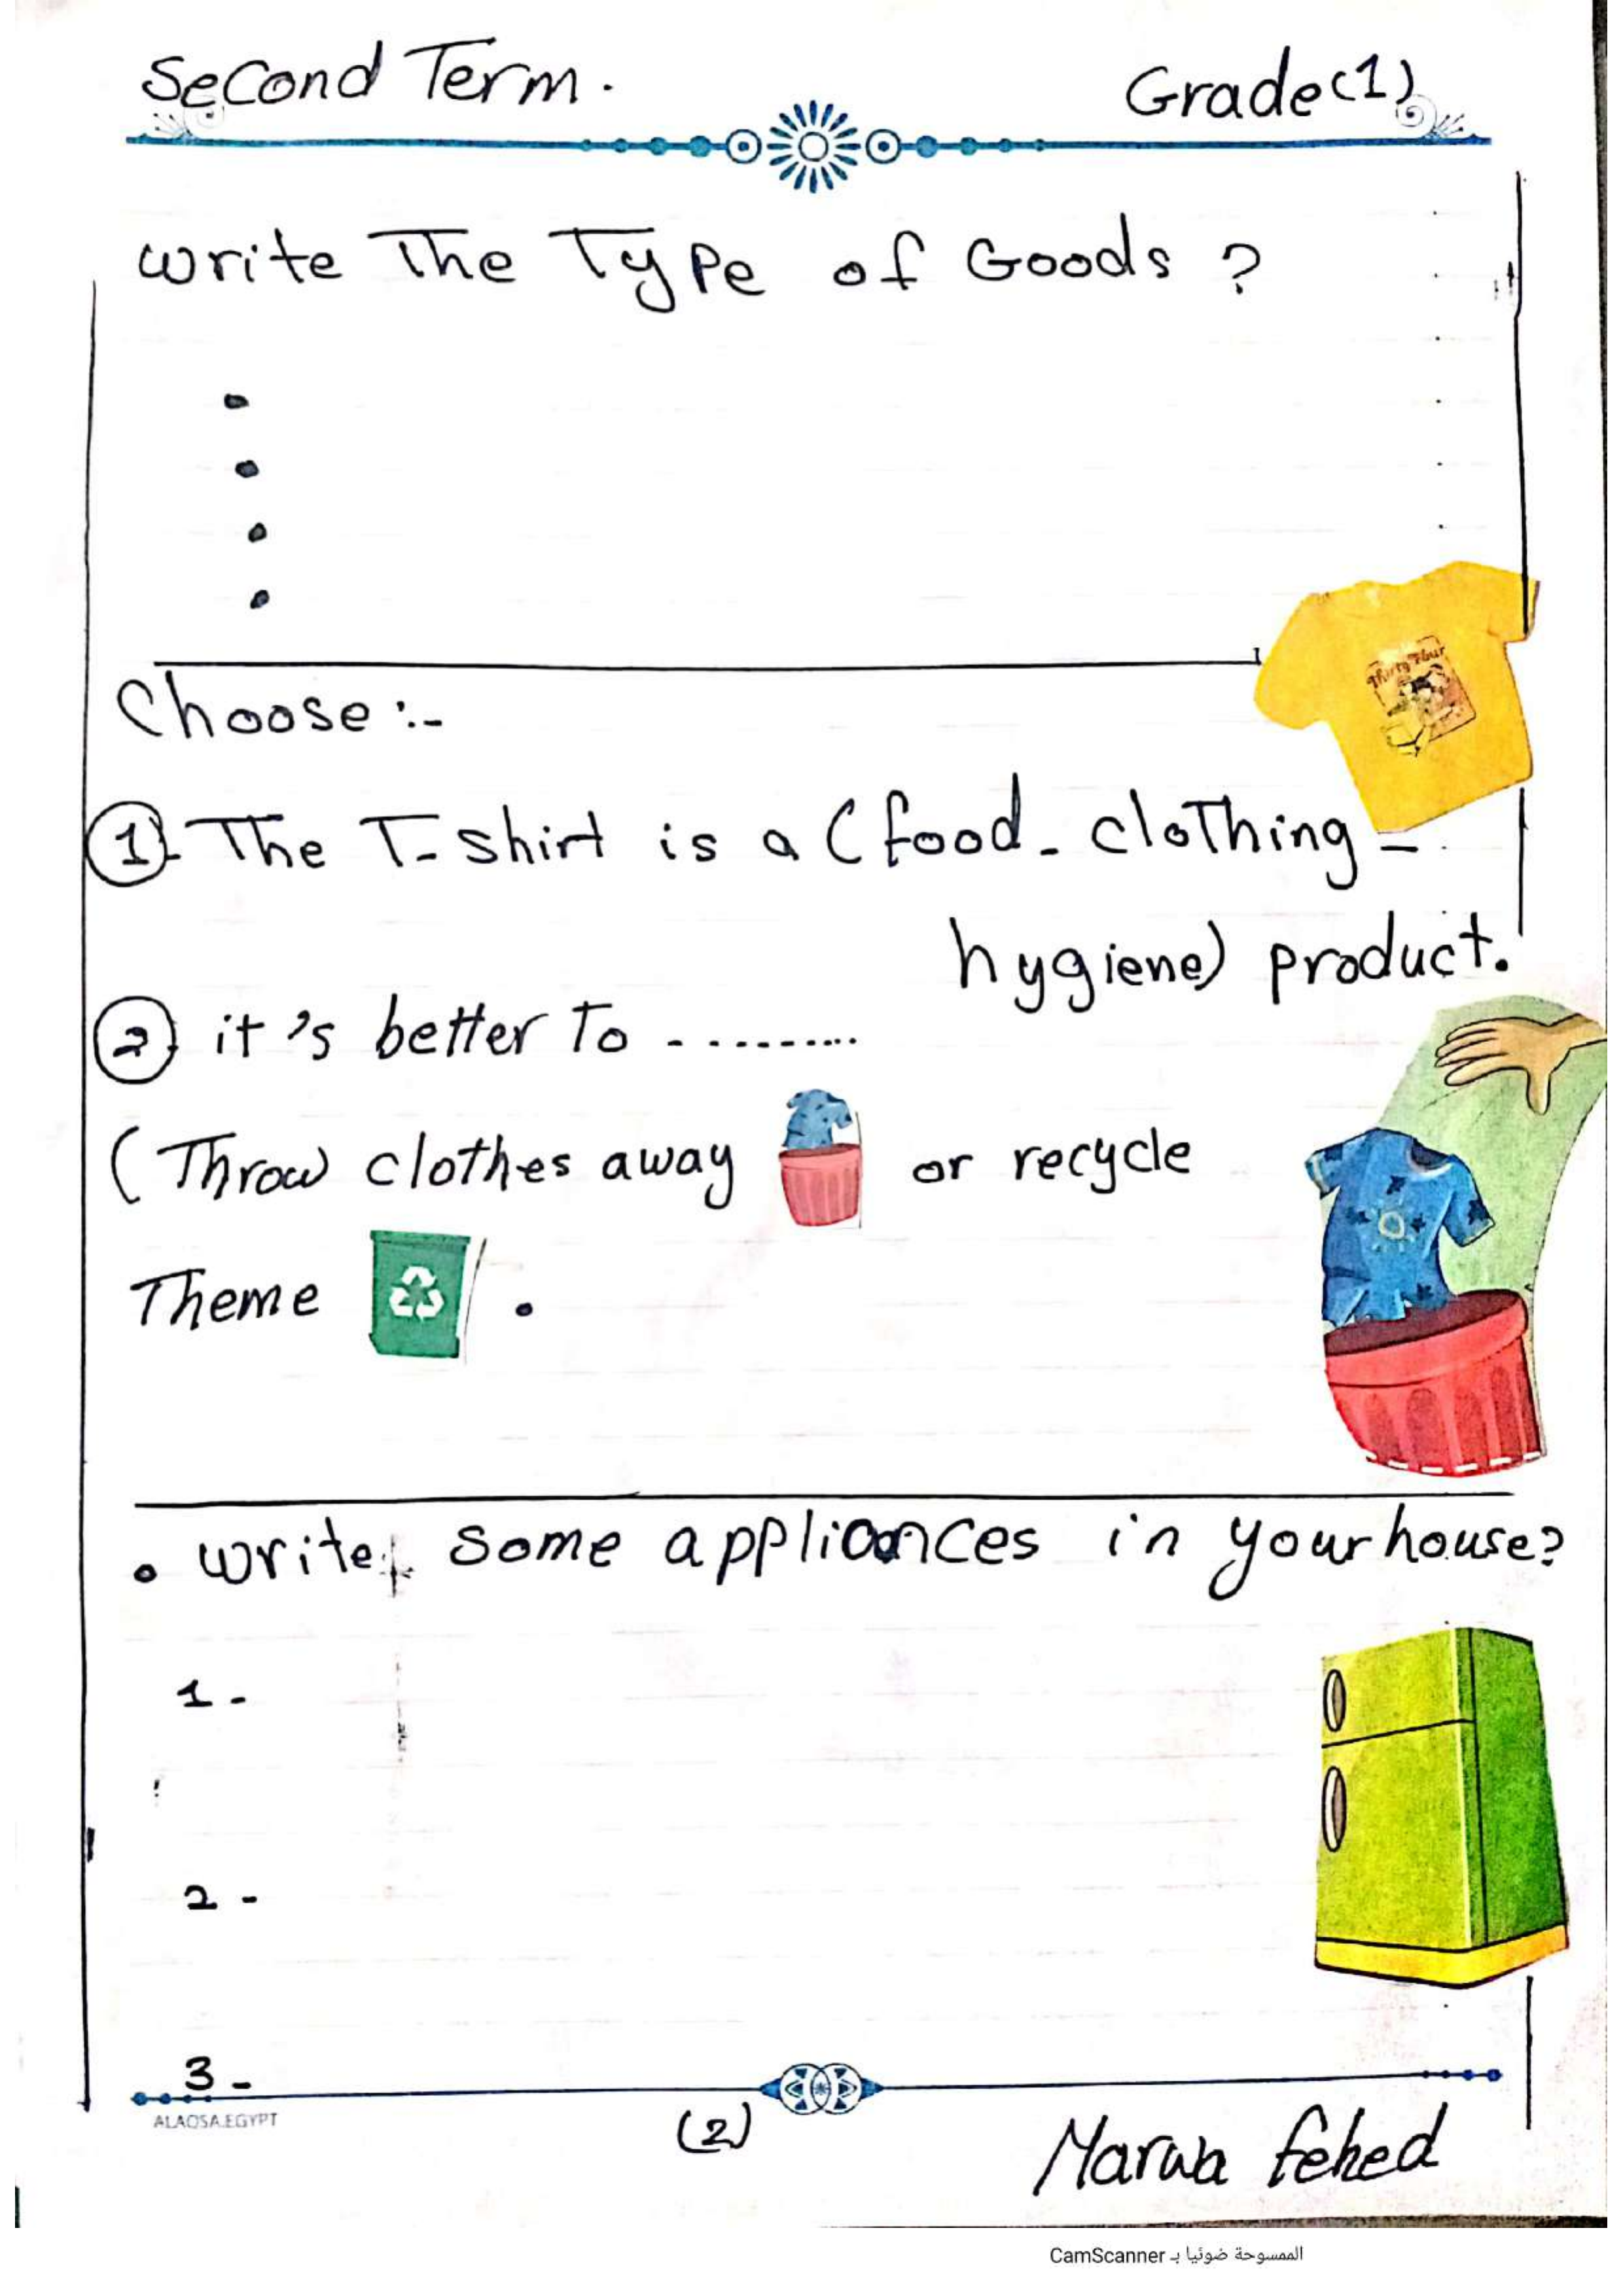 Second Term.
Grade (1)
write The Type of Goods ?
Choose :-
Thirty Four
1 - The T-shirt is a (food - clothing -
hygiene) product.
2 it's better To ..........
(Throw clothes away or recycle
Theme .
• write some appliances in your house?
1 -
2 -
3 -
ALAQSA.EGYPT
(2)
Marwa fehed
الممسوحة ضوئيا بـ CamScanner